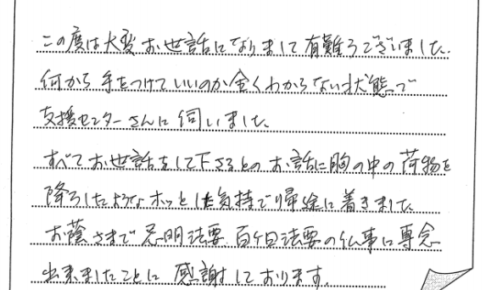 この度は大変お世話になりまして有難うございました。
何から手をつけていいのか全くわからない状態で
支援センターさんに伺いました。
すべてお世話をして下さるとのお話に胸の中の荷物を
降ろしたようなホッとした気持で帰途に着きました。
お蔭さまで 忌明法要 百ケ日法要の仏事に専念
出来ましたことに 感謝しております。